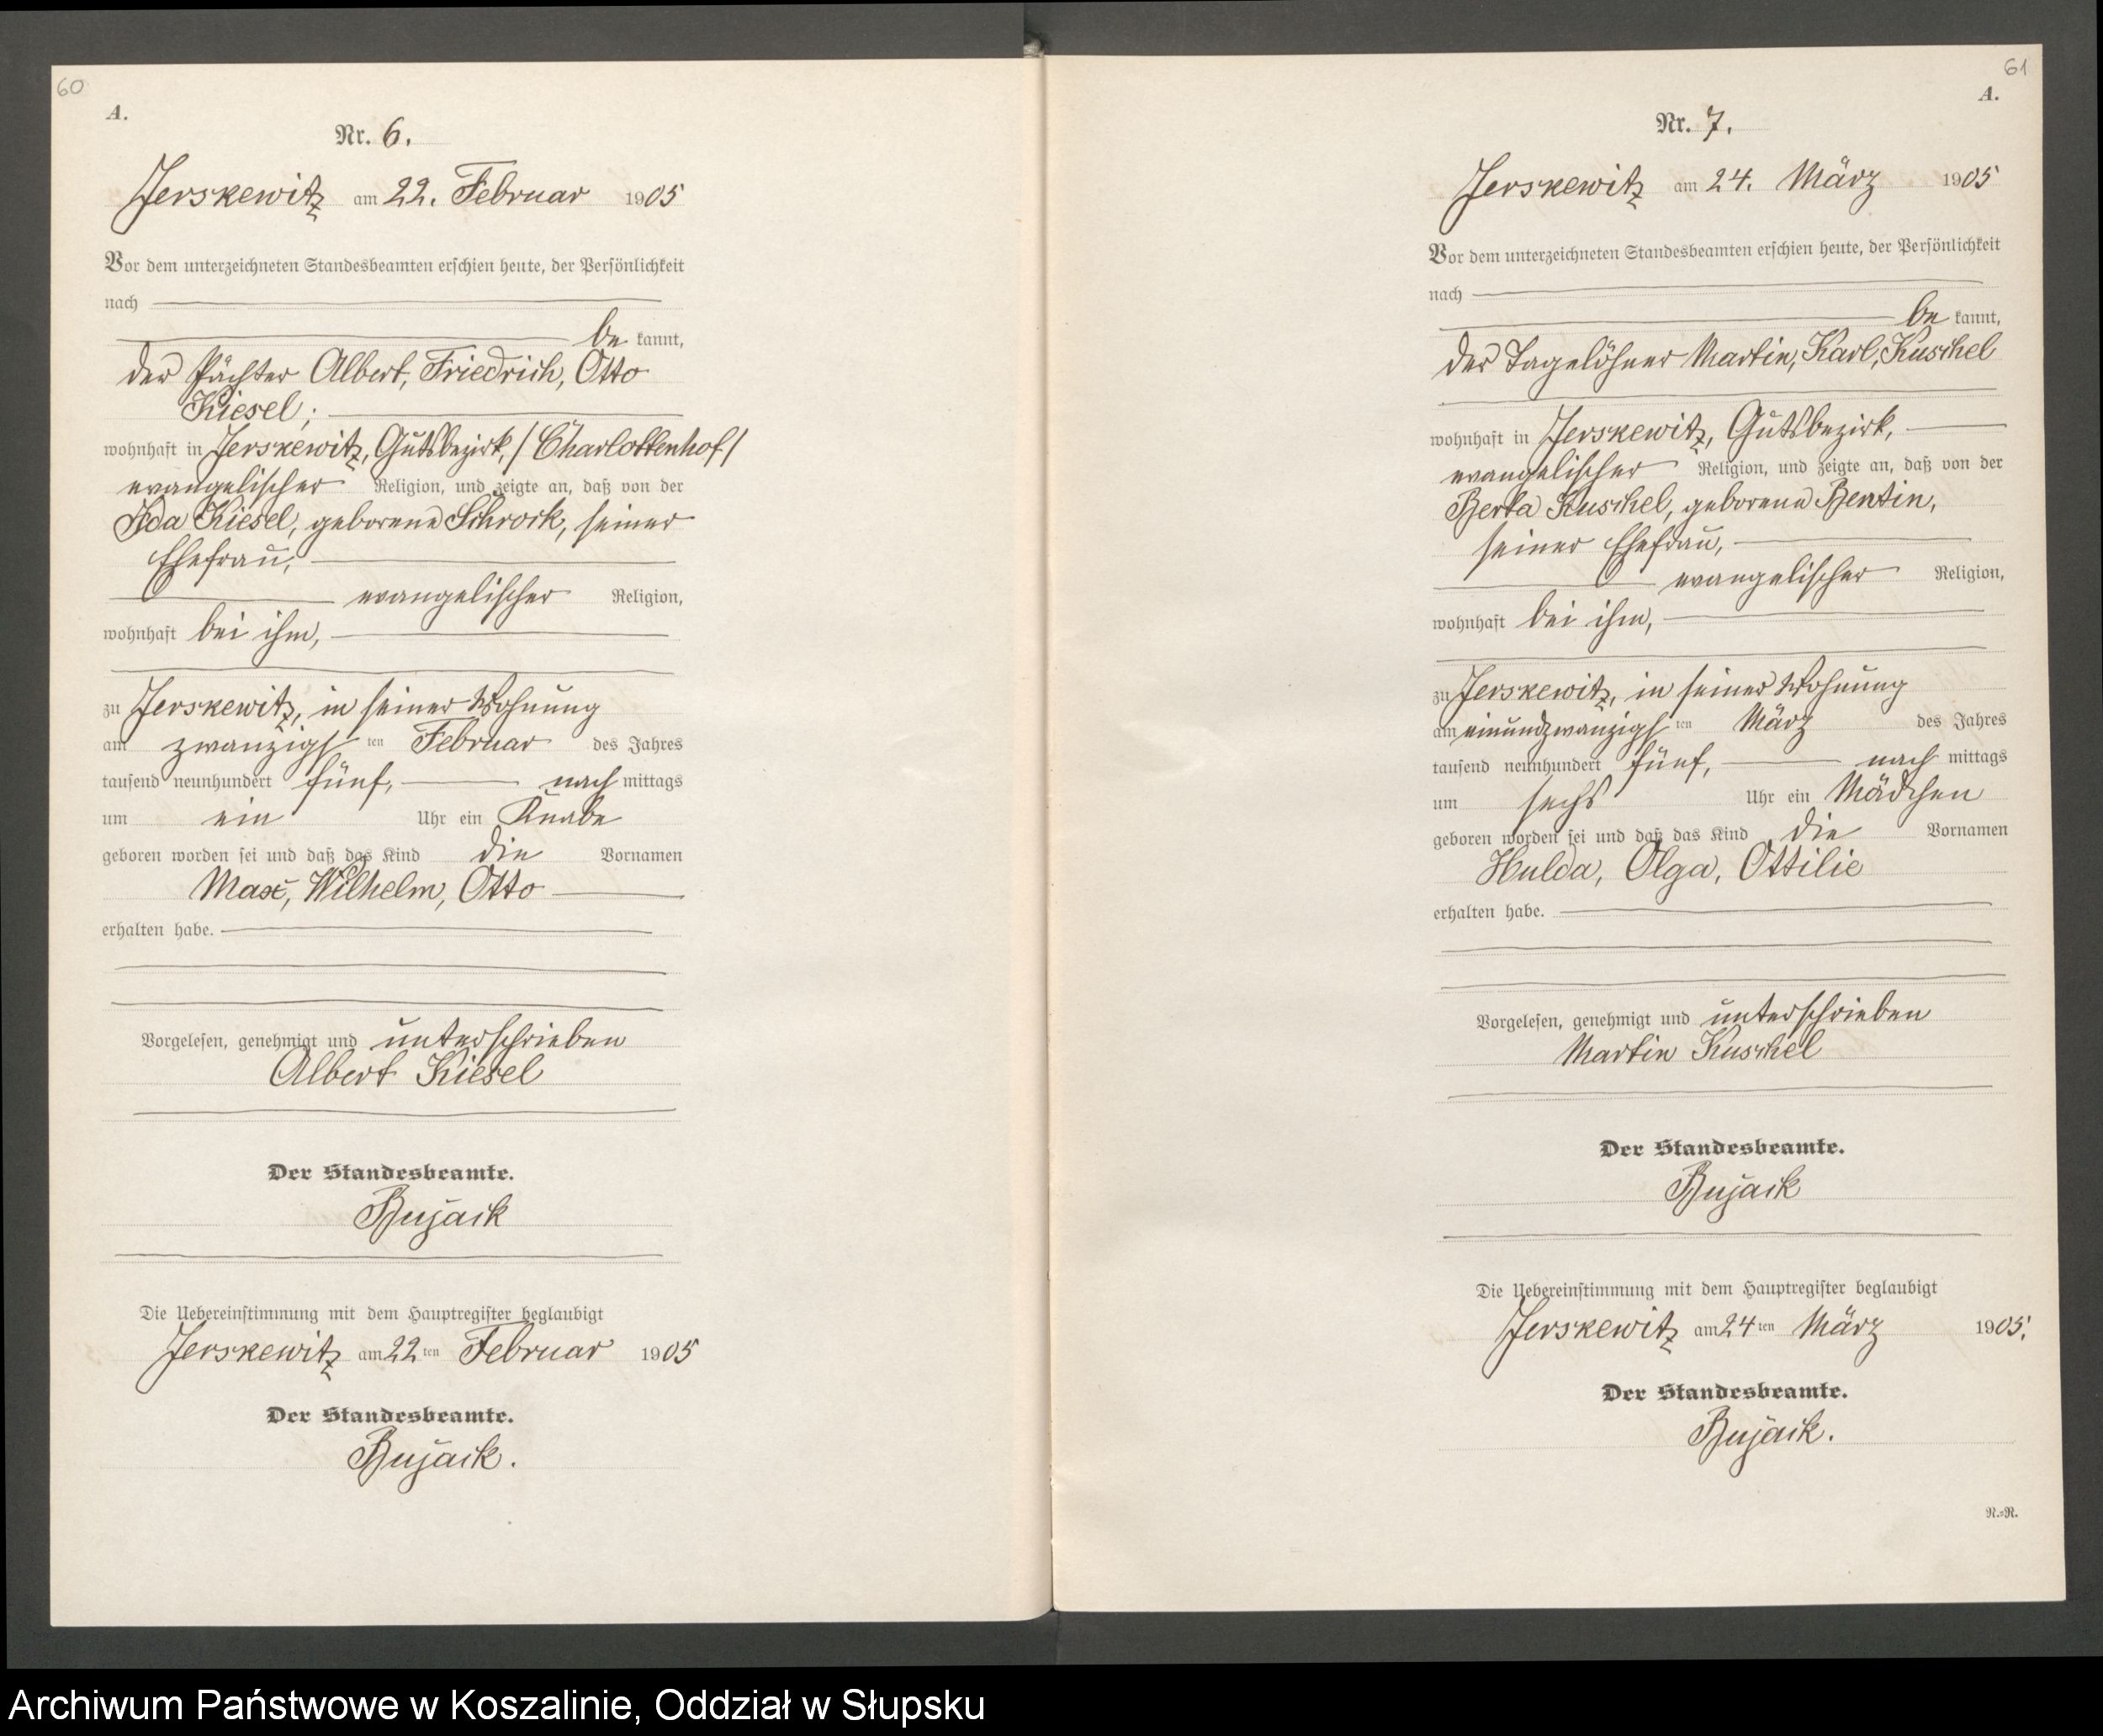 60
A.
Nr. 6.
Jerskewitz am 22. Februar 1905
Vor dem unterzeichneten Standesbeamten erschien heute, der Persönlichkeit
nach
be kannt,
der Pächter Albert, Friedrich, Otto
Kiesel;
wohnhaft in Jerskewitz, Gutsbezirk, / Charlottenhof /
evangelischer Religion, und zeigte an, daß von der
Ida Kiesel, geborene Schrock, seiner
Ehefrau,
evangelischer Religion,
wohnhaft bei ihm,
zu Jerskewitz, in seiner Wohnung
am zwanzigsten Februar des Jahres
tausend neunhundert fünf, nach mittags
um ein Uhr ein Knabe
geboren worden sei und daß das Kind die Vornamen
Max, Wilhelm, Otto
erhalten habe.
Vorgelesen, genehmigt und unterschrieben
Albert Kiesel
Der Standesbeamte.
Bujack
Die Uebereinstimmung mit dem Hauptregister beglaubigt
Jerskewitz am 22ten Februar 1905
Der Standesbeamte.
Bujack.
61
A.
Nr. 7.
Jerskewitz am 24. März 1905
Vor dem unterzeichneten Standesbeamten erschien heute, der Persönlichkeit
nach
be kannt,
der Tagelöhner Martin, Karl, Kuschel
wohnhaft in Jerskewitz, Gutsbezirk,
evangelischer Religion, und zeigte an, daß von der
Berta Kuschel, geborene Bentin,
seiner Ehefrau,
evangelischer Religion,
wohnhaft bei ihm,
zu Jerskewitz, in seiner Wohnung
am einundzwanzigsten März des Jahres
tausend neunhundert fünf, nach mittags
um sechs Uhr ein Mädchen
geboren worden sei und daß das Kind die Vornamen
Hulda, Olga, Ottilie
erhalten habe.
Vorgelesen, genehmigt und unterschrieben
Martin Kuschel
Der Standesbeamte.
Bujack
Die Uebereinstimmung mit dem Hauptregister beglaubigt
Jerskewitz am 24ten März 1905.
Der Standesbeamte.
Bujack.
N.=R.
Archiwum Państwowe w Koszalinie, Oddział w Słupsku